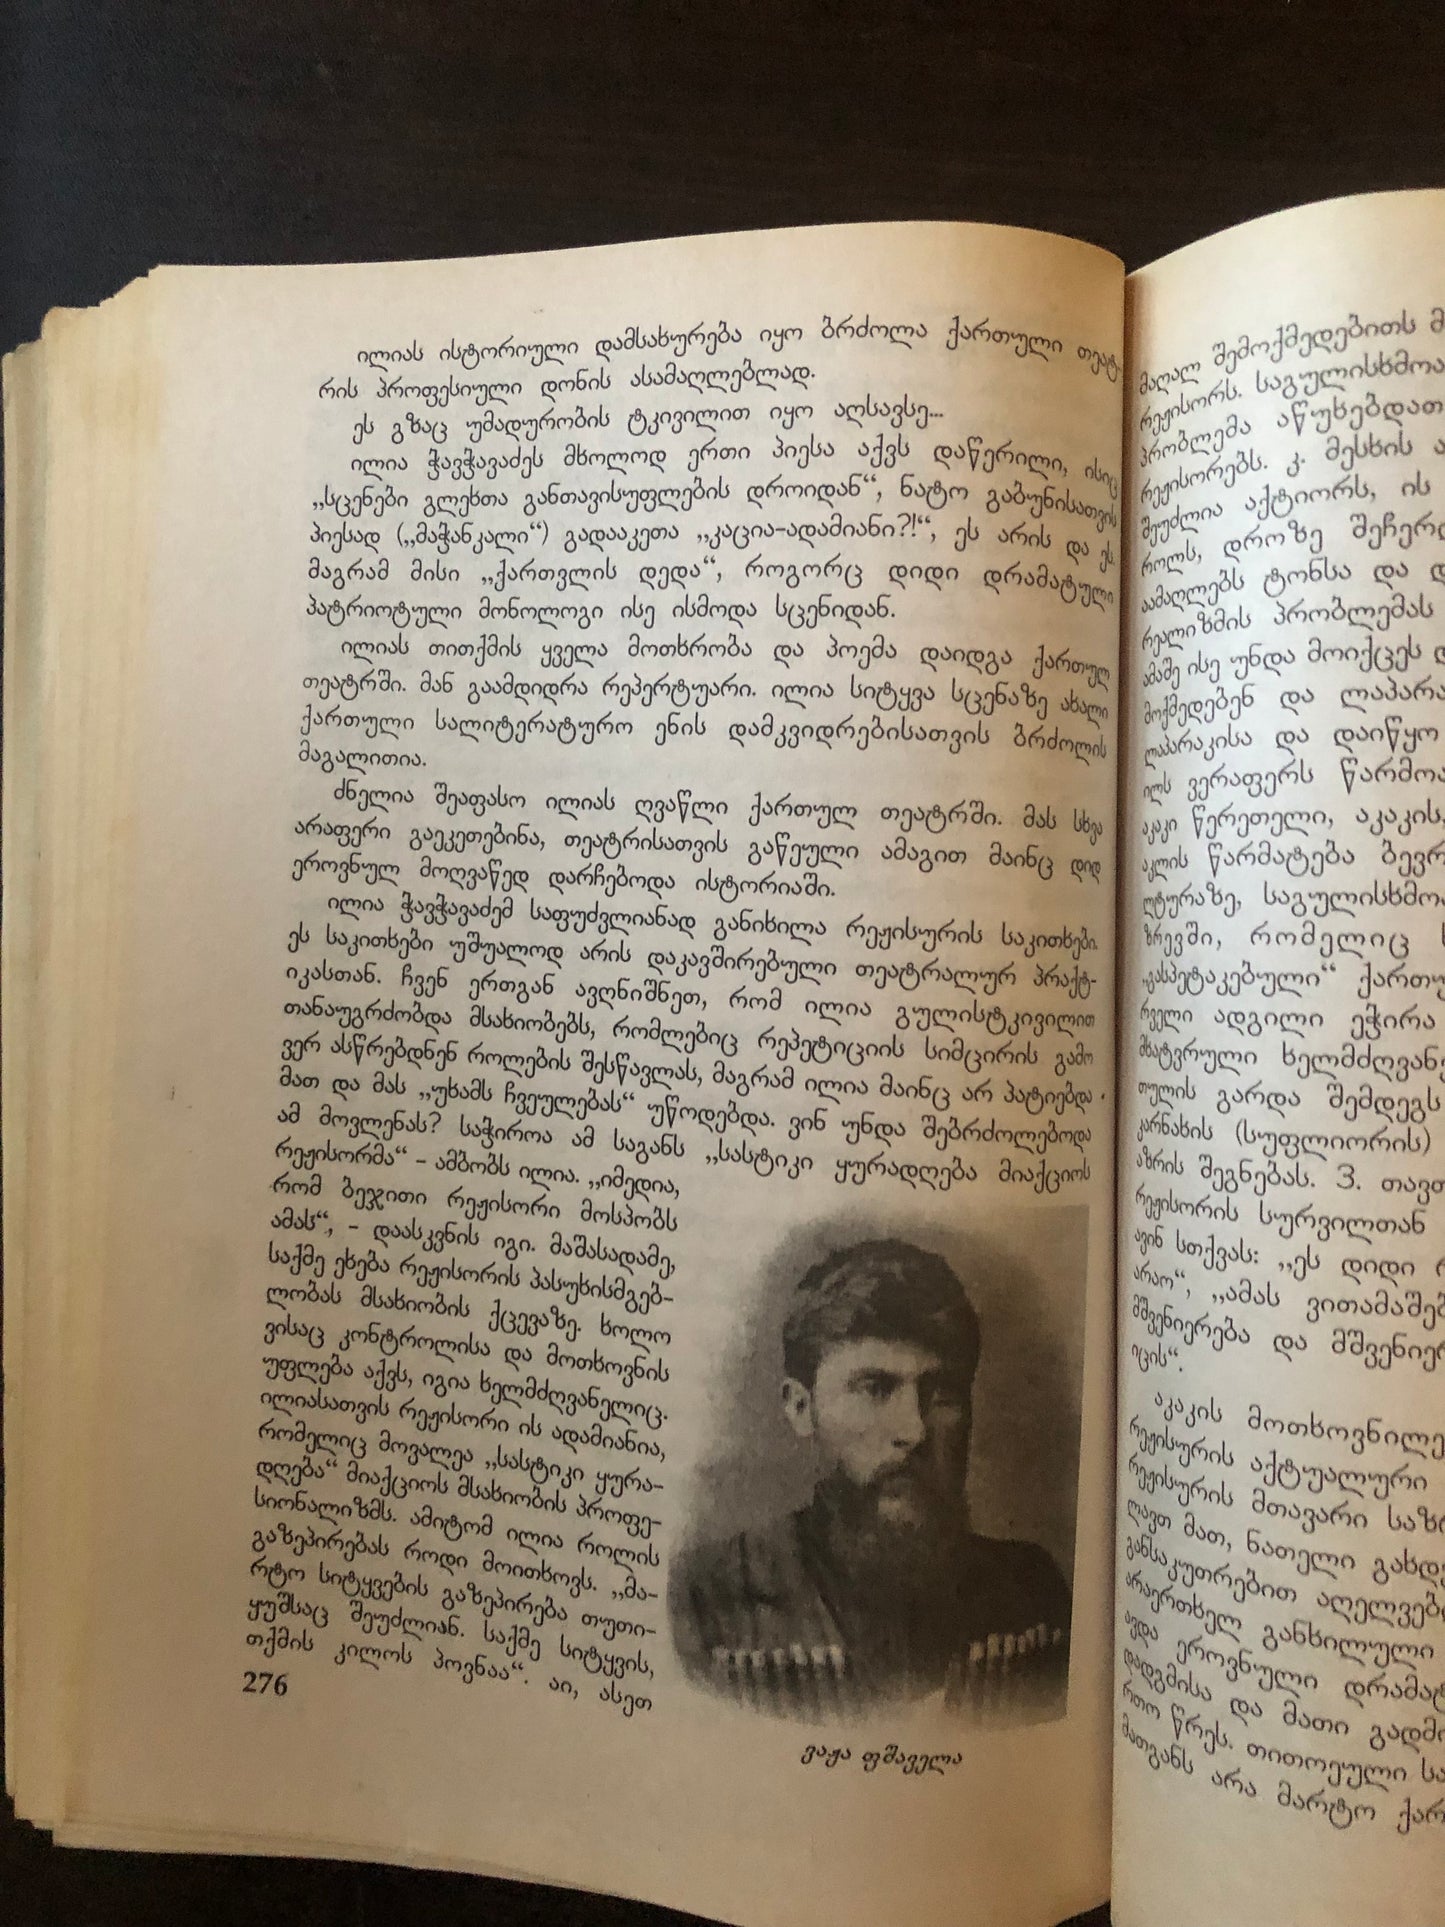 ილიას ისტორიული დამსახურება იყო ბრძოლა ქართული თეატ-
რის პროფესიული დონის ასამაღლებლად.
ეს გზაც უმადურობის ტკივილით იყო აღსავსე...
ილია ჭავჭავაძეს მხოლოდ ერთი პიესა აქვს დაწერილი, ისიც
„სცენები გლეხთა განთავისუფლების დროიდან“, ნატო გაბუნისათვის
პიესად („მაჭანკალი“) გადააკეთა „კაცია-ადამიანი?!“, ეს არის და ეს.
მაგრამ მისი „ქართვლის დედა“, როგორც დიდი დრამატული
პატრიოტული მონოლოგი ისე ისმოდა სცენიდან.
ილიას თითქმის ყველა მოთხრობა და პოემა დაიდგა ქართულ
თეატრში. მან გაამდიდრა რეპერტუარი. ილია სიტყვა სცენაზე ახალი
ქართული სალიტერატურო ენის დამკვიდრებისათვის ბრძოლის
მაგალითია.
ძნელია შეაფასო ილიას ღვაწლი ქართულ თეატრში. მას სხვა
არაფერი გაეკეთებინა, თეატრისათვის გაწეული ამაგით მაინც დიდ
ეროვნულ მოღვაწედ დარჩებოდა ისტორიაში.
ილია ჭავჭავაძემ საფუძვლიანად განიხილა რეჟისურის საკითხები.
ეს საკითხები უშუალოდ არის დაკავშირებული თეატრალურ პრაქტ-
იკასთან. ჩვენ ერთგან ავღნიშნეთ, რომ ილია გულისტკივილით
თანაუგრძობდა მსახიობებს, რომლებიც რეპეტიციის სიმცირის გამო
ვერ ასწრებდნენ როლების შესწავლას, მაგრამ ილია მაინც არ პატიებდა
მათ და მას „უხამს ჩვეულებას“ უწოდებდა. ვინ უნდა შებრძოლებოდა
ამ მოვლენას? საჭიროა ამ საგანს „სასტიკი ყურადღება მიაქციოს
რეჟისორმა“ – ამბობს ილია. „იმედია,
რომ ბეჯითი რეჟისორი მოსპობს
ამას“, – დაასკვნის იგი. მაშასადამე,
საქმე ეხება რეჟისორის პასუხისმგებ-
ლობას მსახიობის ქცევაზე. ხოლო
ვისაც კონტროლისა და მოთხოვნის
უფლება აქვს, იგია ხელმძღვანელიც.
ილიასათვის რეჟისორი ის ადამიანია,
რომელიც მოვალეა „სასტიკი ყურა-
დღება“ მიაქციოს მსახიობის პროფე-
სიონალიზმს. ამიტომ ილია როლის
გაზეპირებას როდი მოითხოვს. „მა-
რტო სიტყვების გაზეპირება თუთი-
ყუშსაც შეუძლიან. საქმე სიტყვის,
თქმის კილოს პოვნაა“. აი, ასეთ
276
ვაჟა ფშაველა
მაღალ შემოქმედებითს
რეჟისორს. საგულისხმოა
პრობლემა აწუხებდათ
რეჟისორებს. კ. მესხის
შეუძლია აქტიორს, ის
როლს, დროზე
აამაღლებს ტონსა და
რეალიზმის პრობლემას
ამაშე ისე უნდა მოიქცეს
მოქმედებენ და
ლაპარაკისა და დაიწყო
ილს ვერაფერს
აკაკი წერეთელი, აკაკის
აკლის წარმატება
ღტურაზე,
ზრევში, რომელიც
„გასპეტაკებული“
რველი ადგილი ეჭირა
მხატვრული
თულის გარდა შემდეგს
კარნახის (სუფლიორის)
აზრის შეგნებას. 3.
რეჟისორის სურვილთან
ავინ სთქვას: „ეს დიდი
არაო“, „ამას
მშვენიერება და
იცის“.
აკაკის
რეჟისურის აქტუალური
რეჟისურის მთავარი
ლავთ მათ, ნათელი
განსაკუთრებით
არაერთხელ განხილული
ავდა ეროვნული
დადგმისა და მათი
რთო წრეს. თითოეული
მათგანს არა მარტო